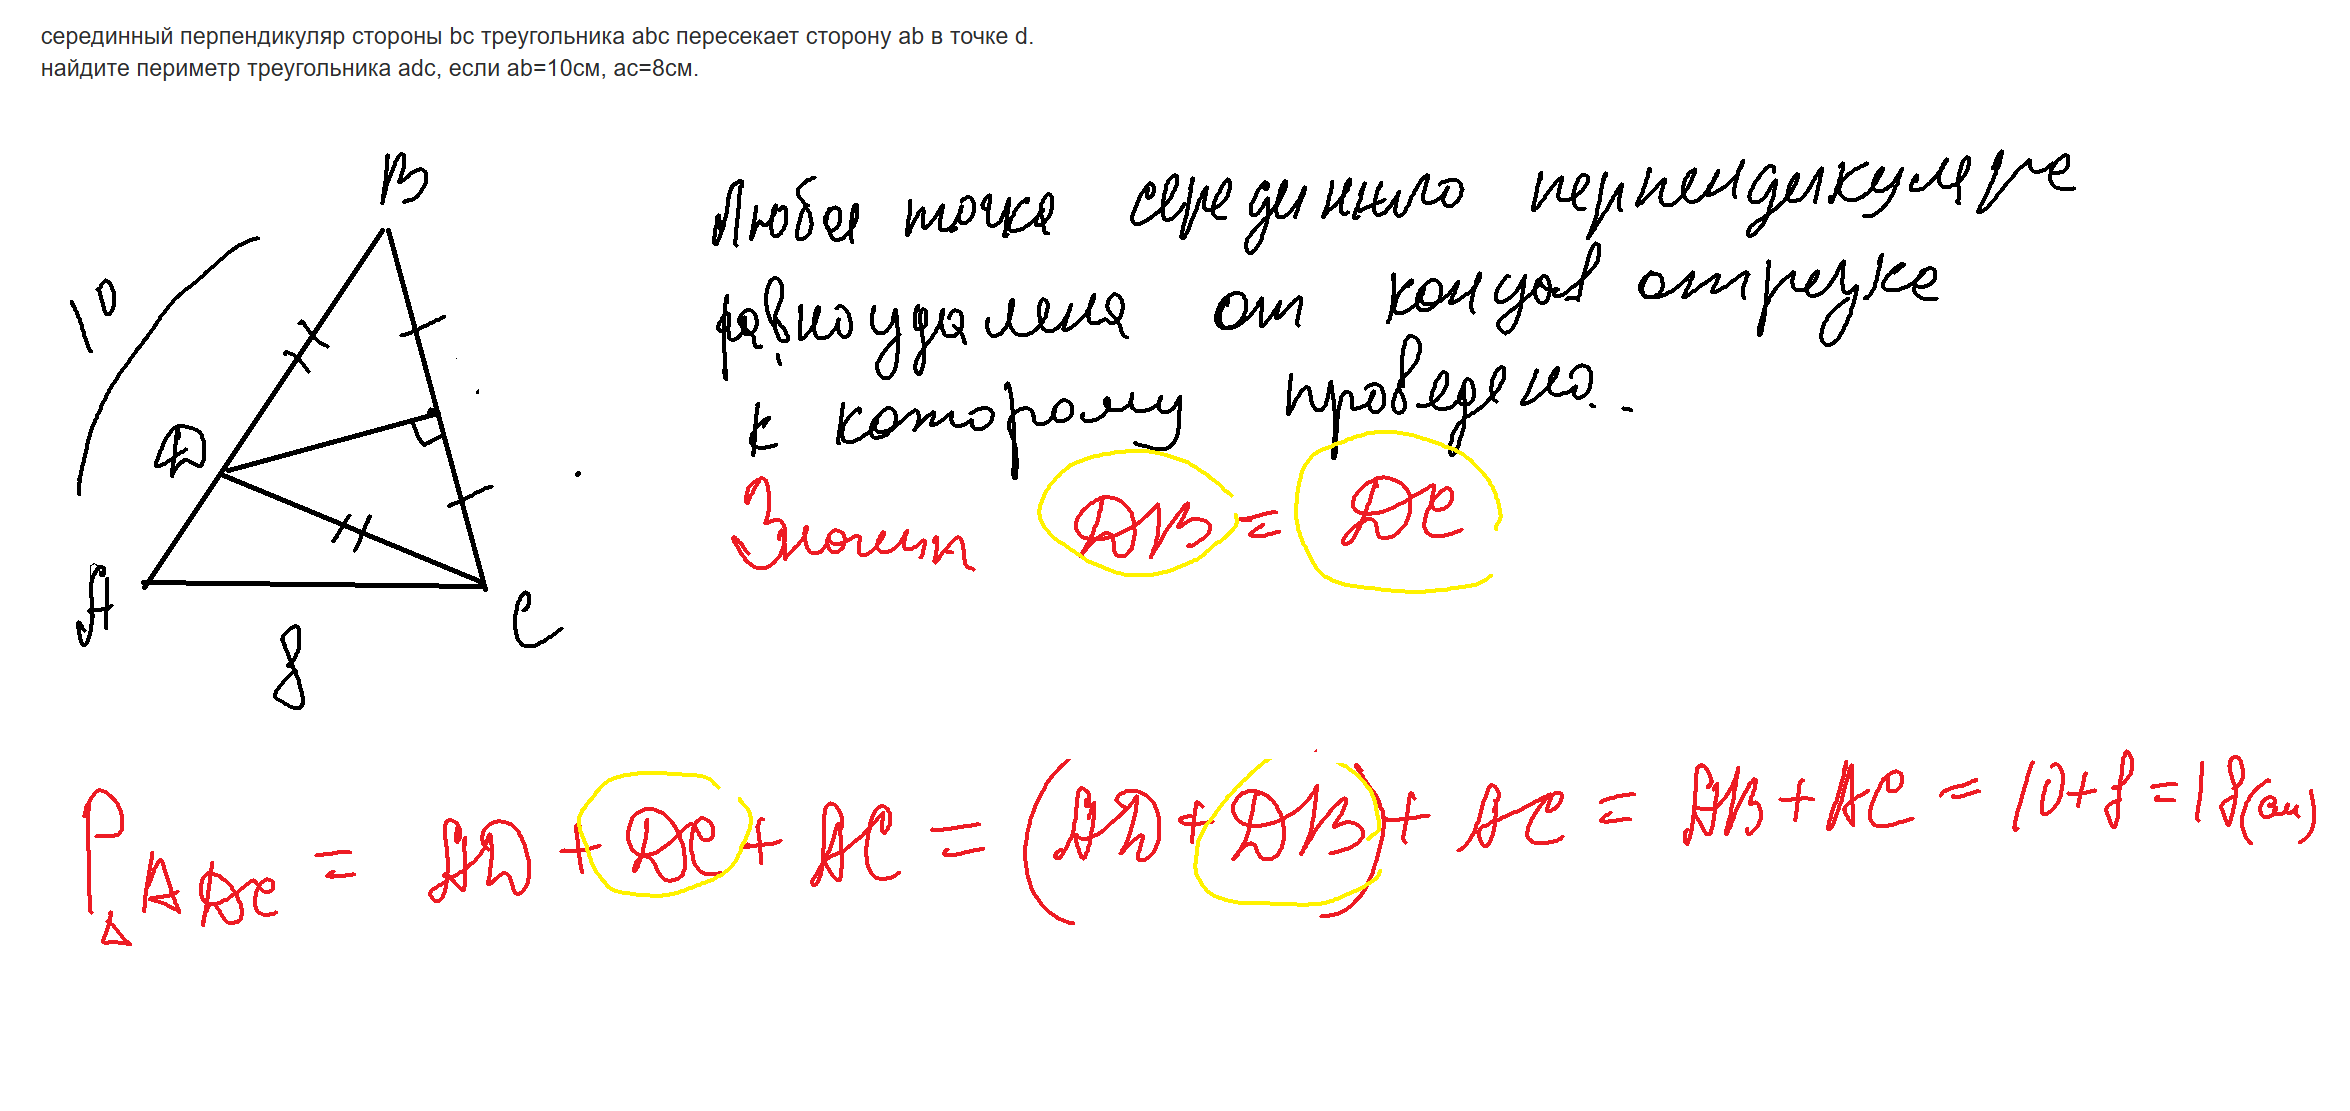 серединный перпендикуляр стороны bc треугольника abc пересекает сторону ab в точке d.
найдите периметр треугольника adc, если ab=10см, ac=8см.
B
Любая точка серединного перпендикуляра
10
равноудалена от концов отрезка
к которому проведено.
D
Значит DB = DC
A
C
8
P△ADC = AD + DC + AC = (AD + DB) + AC = AB + AC = 10 + 8 = 18 (см)